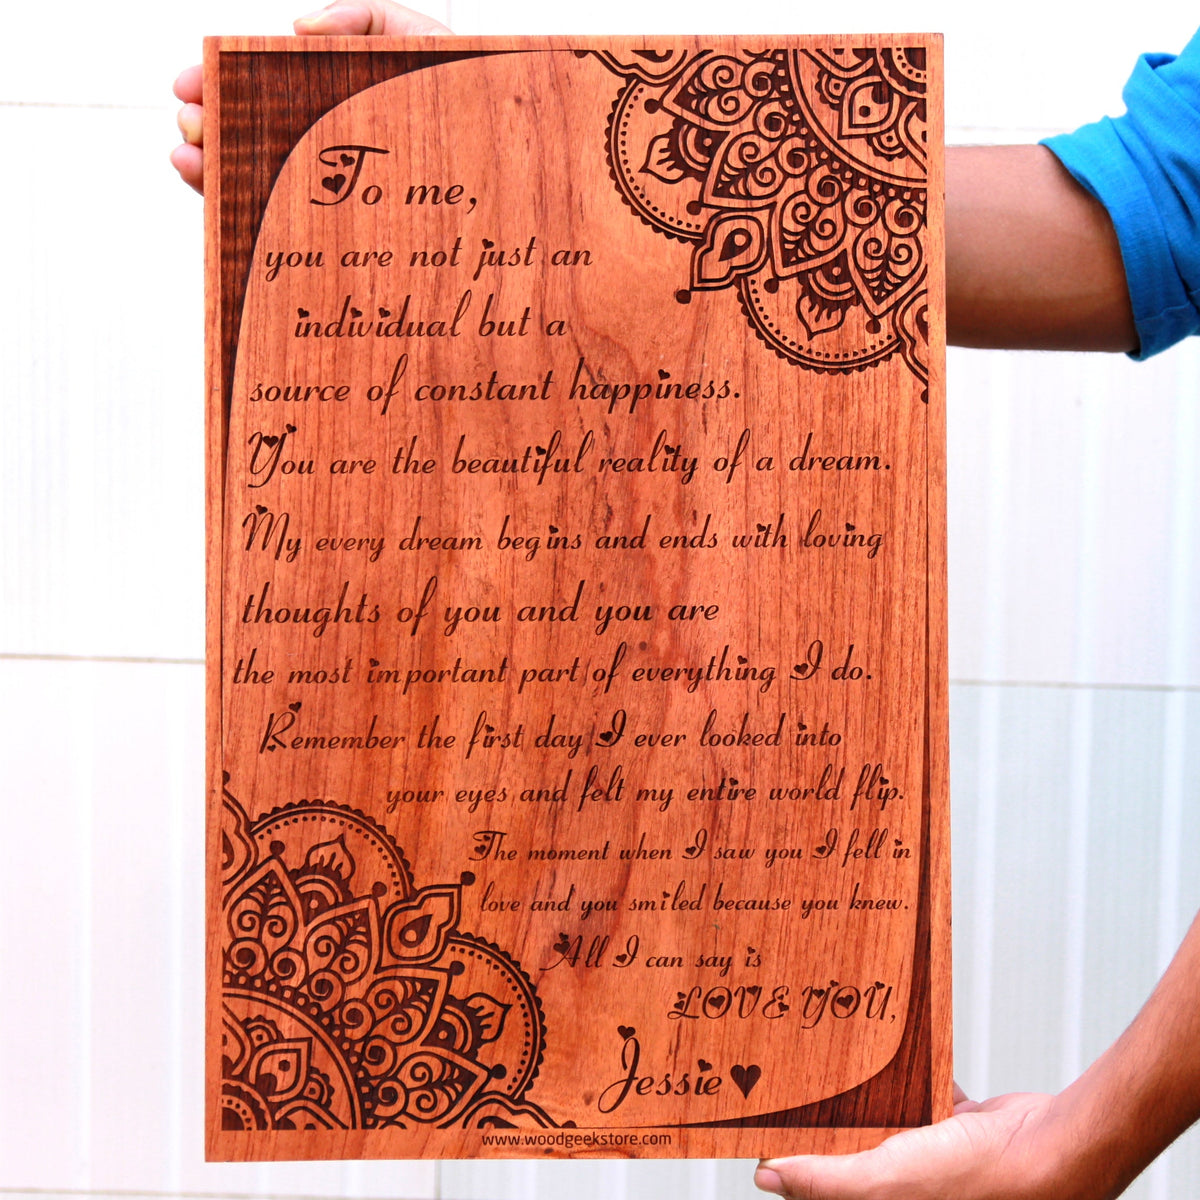 To me,
you are not just an
individual but a
source of constant happiness.
You are the beautiful reality of a dream.
My every dream begins and ends with loving
thoughts of you and you are
the most important part of everything I do.
Remember the first day I ever looked into
your eyes and felt my entire world flip.
The moment when I saw you I fell in
love and you smiled because you knew.
All I can say is
LOVE YOU,
Jessie
www.woodgeekstore.com